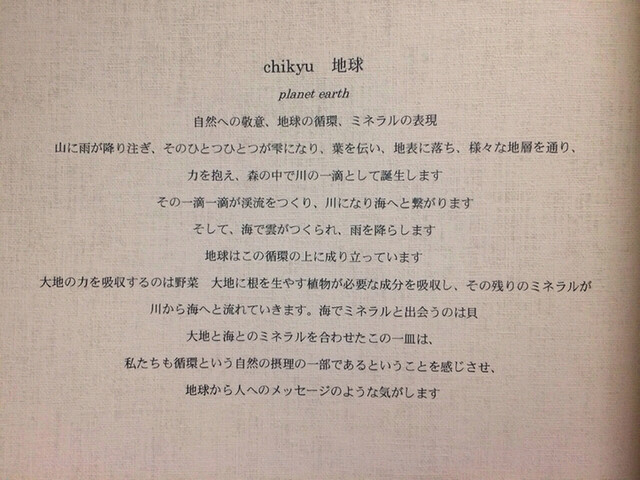 chikyu　地球
planet earth
自然への敬意、地球の循環、ミネラルの表現
山に雨が降り注ぎ、そのひとつひとつが雫になり、葉を伝い、地表に落ち、様々な地層を通り、
力を抱え、森の中で川の一滴として誕生します
その一滴一滴が渓流をつくり、川になり海へと繋がります
そして、海で雲がつくられ、雨を降らします
地球はこの循環の上に成り立っています
大地の力を吸収するのは野菜　大地に根を生やす植物が必要な成分を吸収し、その残りのミネラルが
川から海へと流れていきます。海でミネラルと出会うのは貝
大地と海とのミネラルを合わせたこの一皿は、
私たちも循環という自然の摂理の一部であるということを感じさせ、
地球から人へのメッセージのような気がします